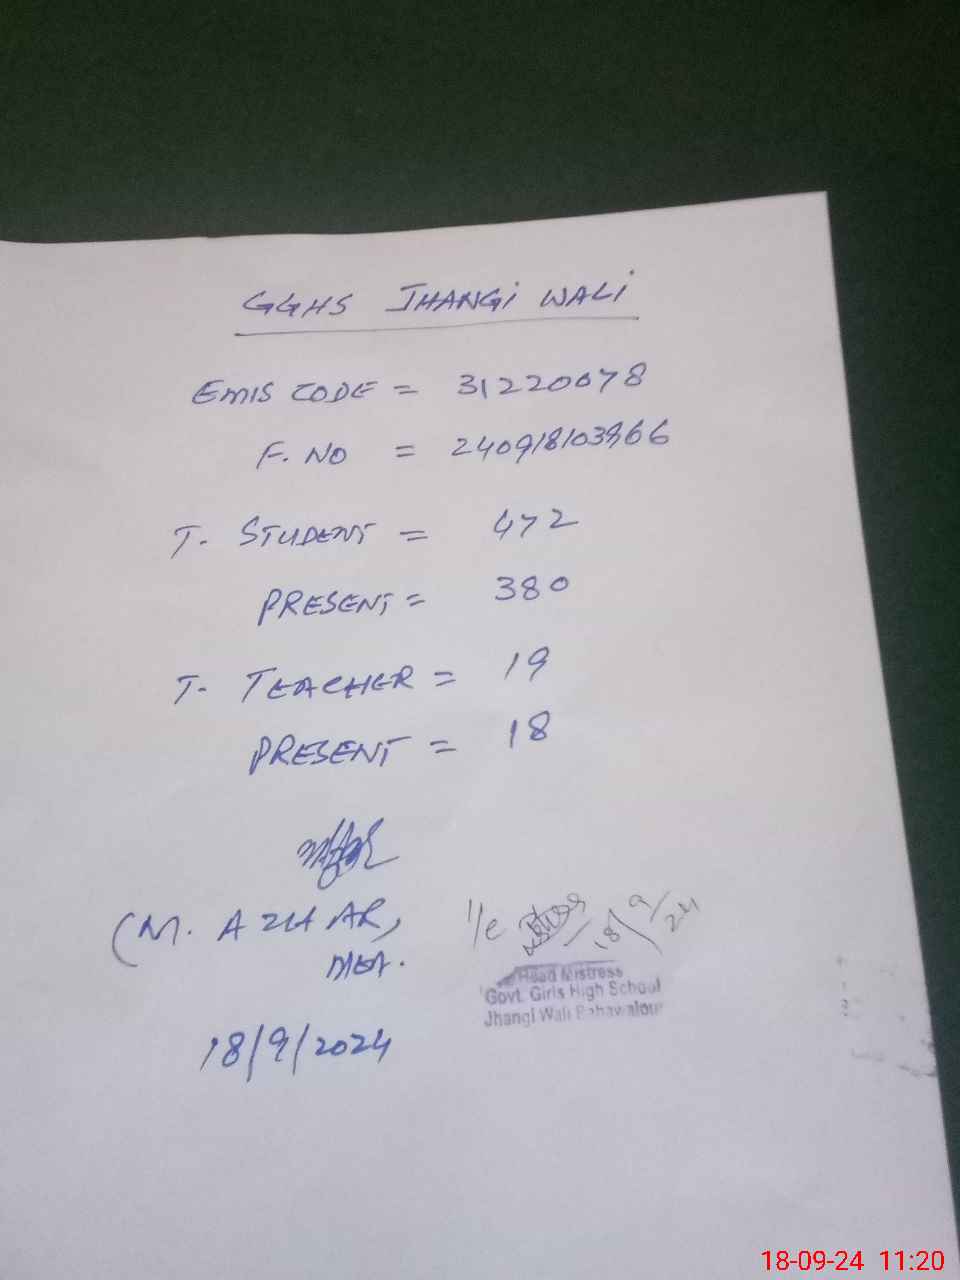 GGHS JHANGi WALi
EMIS CODE = 31220078
F. NO = 240918103966
T. STUDENT = 472
PRESENT = 380
T. TEACHER = 19
PRESENT = 18
(M. AZHAR,
MEA.
I/C 18/9/24
Head Mistress
Govt. Girls High School
Jhangi Wali Bahawalpur
18/9/2024
18-09-24 11:20